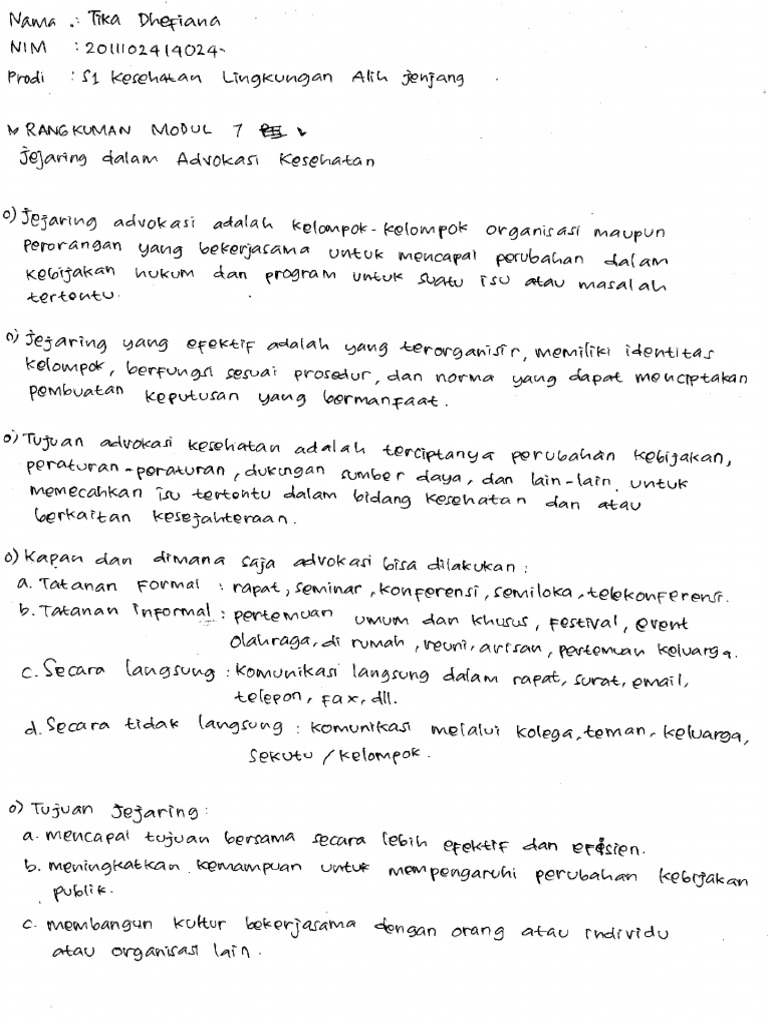 Nama : Tika Dhefiana
NIM : 2011102414024
Prodi : S1 Kesehatan Lingkungan Alih Jenjang
RANGKUMAN MODUL 7
Jejaring dalam Advokasi Kesehatan
o) Jejaring advokasi adalah kelompok-kelompok organisasi maupun
perorangan yang bekerjasama untuk mencapai perubahan dalam
kebijakan hukum dan program untuk suatu isu atau masalah
tertentu.
o) Jejaring yang efektif adalah yang terorganisir, memiliki identitas
kelompok, berfungsi sesuai prosedur, dan norma yang dapat menciptakan
pembuatan keputusan yang bermanfaat.
o) Tujuan advokasi kesehatan adalah terciptanya perubahan kebijakan,
peraturan-peraturan, dukungan sumber daya, dan lain-lain. untuk
memecahkan isu tertentu dalam bidang kesehatan dan atau
berkaitan kesejahteraan.
o) Kapan dan dimana saja advokasi bisa dilakukan :
a. Tatanan Formal : rapat, seminar, konferensi, semiloka, telekonferensi.
b. Tatanan Informal : pertemuan umum dan khusus, festival, event
olahraga, di rumah, reuni, arisan, pertemuan keluarga.
c. Secara langsung : komunikasi langsung dalam rapat, surat, email,
telepon, fax, dll.
d. Secara tidak langsung : komunikasi melalui kolega, teman, keluarga,
sekutu / kelompok.
o) Tujuan Jejaring :
a. mencapai tujuan bersama secara lebih efektif dan efisien.
b. meningkatkan kemampuan untuk mempengaruhi perubahan kebijakan
publik.
c. membangun kultur bekerjasama dengan orang atau individu
atau organisasi lain.